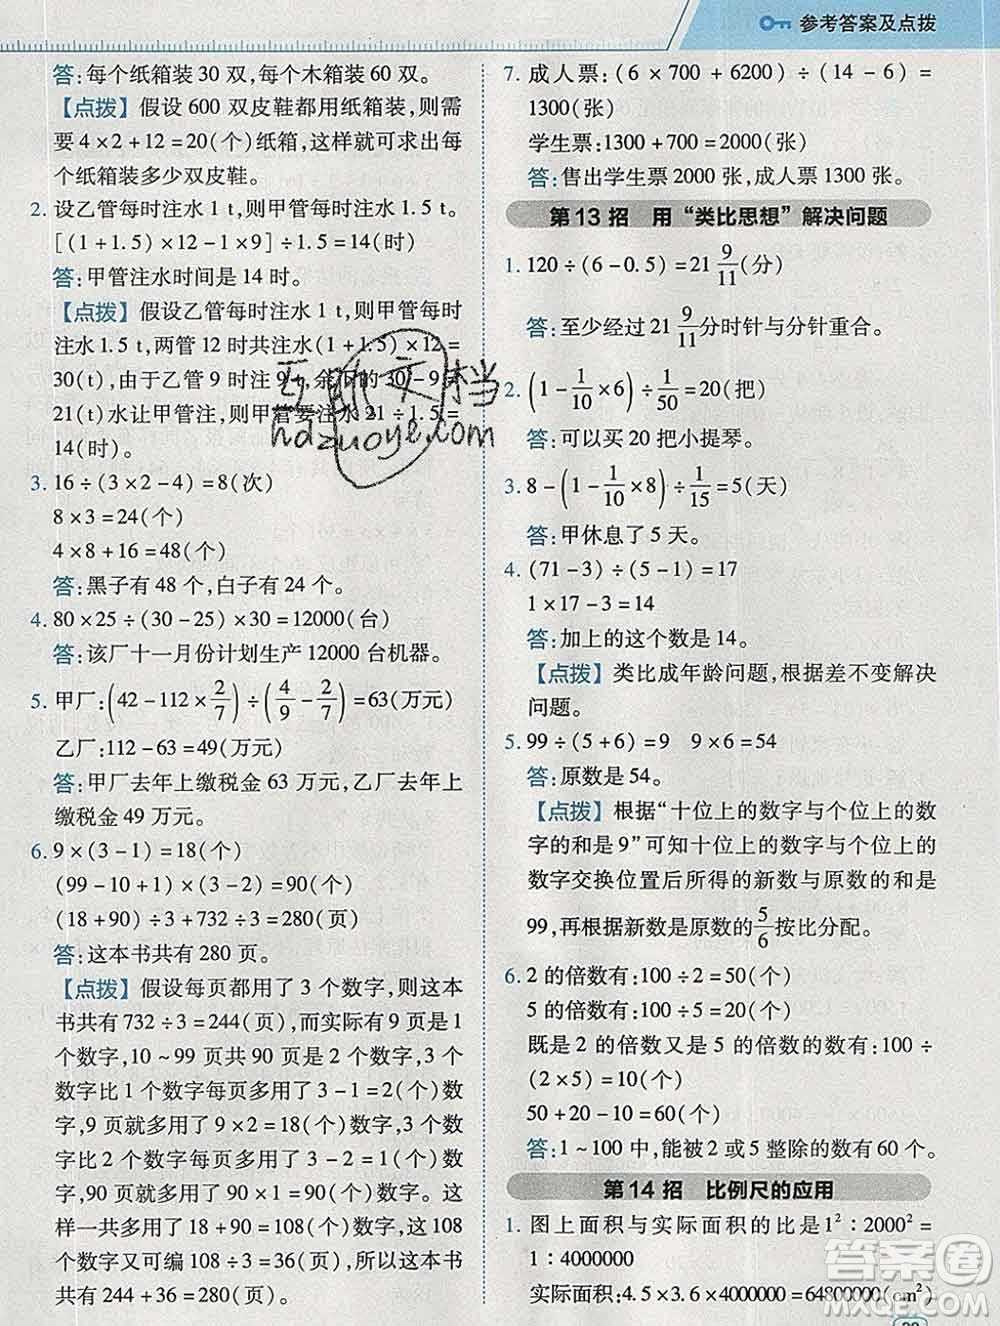 参考答案及点拨
答:每个纸箱装 30 双,每个木箱装 60 双。
【点拨】假设 600 双皮鞋都用纸箱装,则需
要 4×2+12=20(个)纸箱,这样就可求出每
个纸箱装多少双皮鞋。
2. 设乙管每时注水 1 t,则甲管每时注水 1.5 t。
[(1+1.5)×12-1×9]÷1.5=14(时)
答:甲管注水时间是 14 时。
【点拨】假设乙管每时注水 1 t,则甲管每时
注水 1.5 t,两管 12 时共注水(1+1.5)×12=
30(t),由于乙管 9 时注 9 t,余下的 30-9=
21(t)水让甲管注,则甲管要注水 21÷1.5=
14(时)。
3. 16÷(3×2-4)=8(次)
8×3=24(个)
4×8+16=48(个)
答:黑子有 48 个,白子有 24 个。
4. 80×25÷(30-25)×30=12000(台)
答:该厂十一月份计划生产 12000 台机器。
5. 甲厂:(42-112×2/7)÷(4/9-2/7)=63(万元)
乙厂:112-63=49(万元)
答:甲厂去年上缴税金 63 万元,乙厂去年上
缴税金 49 万元。
6. 9×(3-1)=18(个)
(99-10+1)×(3-2)=90(个)
(18+90)÷3+732÷3=280(页)
答:这本书共有 280 页。
【点拨】假设每页都用了 3 个数字,则这本
书共有 732÷3=244(页),而实际有 9 页是 1
个数字,10~99 页共 90 页是 2 个数字,3 个
数字比 1 个数字每页多用了 3-1=2(个)数
字,9 页就多用了 9×2=18(个)数字,3 个数
字比 2 个数字每页多用了 3-2=1(个)数
字,90 页就多用了 90×1=90(个)数字。这
样一共多用了 18+90=108(个)数字,这 108
个数字又可编 108÷3=36(页),所以这本书
共有 244+36=280(页)。
7. 成人票:(6×700+6200)÷(14-6)=
1300(张)
学生票:1300+700=2000(张)
答:售出学生票 2000 张,成人票 1300 张。
第 13 招 用“类比思想”解决问题
1. 120÷(6-0.5)=21 9/11(分)
答:至少经过 21 9/11 分时针与分针重合。
2. (1-1/10×6)÷1/50=20(把)
答:可以买 20 把小提琴。
3. 8-(1-1/10×8)÷1/15=5(天)
答:甲休息了 5 天。
4. (71-3)÷(5-1)=17
1×17-3=14
答:加上的这个数是 14。
【点拨】类比成年龄问题,根据差不变解决
问题。
5. 99÷(5+6)=9 9×6=54
答:原数是 54。
【点拨】根据“十位上的数字与个位上的数
字的和是 9”可知十位上的数字与个位上的
数字交换位置后所得的新数与原数的和是
99,再根据新数是原数的 5/6 按比分配。
6. 2 的倍数有:100÷2=50(个)
5 的倍数有:100÷5=20(个)
既是 2 的倍数又是 5 的倍数的数有:100÷
(2×5)=10(个)
50+20-10=60(个)
答:1~100 中,能被 2 或 5 整除的数有 60 个。
第 14 招 比例尺的应用
1. 图上面积与实际面积的比是 1²:2000²=
1:4000000
实际面积:4.5×3.6×4000000=64800000(cm²)
互联文档
hdzuoye.com
答案圈
MXQE.COM